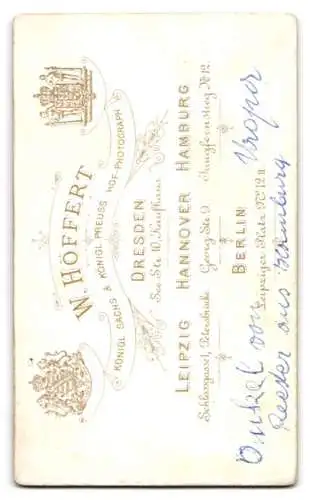 W. HÖFFERT
KÖNIGL. SÄCHS. & KÖNIGL. PREUSS. HOF-PHOTOGRAPH.
DRESDEN
See Str. 10, Kaufhaus
LEIPZIG HANNOVER HAMBURG
Schlossgasse 1, Petersbrücke Georg Str. 9 Jungfernstieg № 12.
BERLIN
Leipziger Platz № 12.
Onkel von
Reeder aus Hamburg